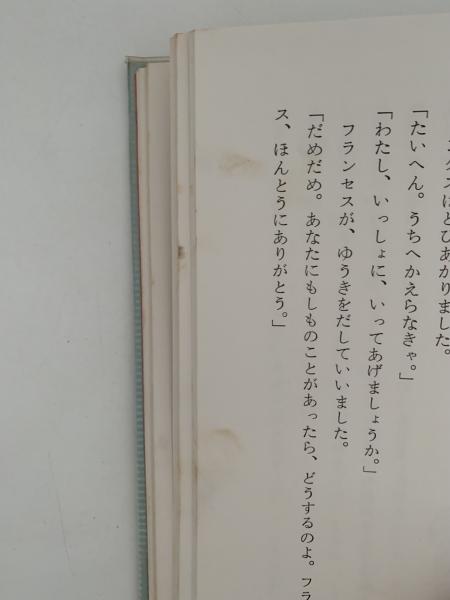 はとびあがりました。
「たいへん。うちへかえらなきゃ。」
「わたし、いっしょに、いってあげましょうか。」
フランセスが、ゆうきをだしていいました。
「だめだめ。あなたにもしものことがあったら、どうするのよ。フラ
ス、ほんとうにありがとう。」